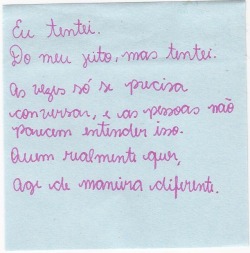 Eu tentei.
Do meu jeito, mas tentei.
As vezes só se precisa
conversar, e as pessoas não
parecem entender isso.
Quem realmente quer,
Age de maneira diferente.